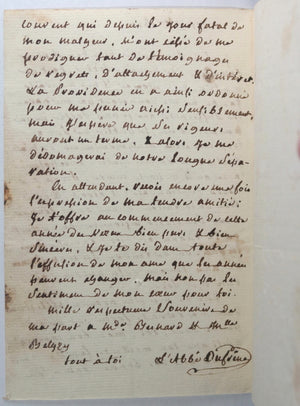 couvent qui depuis le jour fatal de
mon malheur, n'ont cessé de me
prodiguer tant de témoignages
de regrets, d'attachement & d'intérêt.
La Providence en a ainsi ordonné
pour me punir sensiblement,
mais j'espère que ses rigueurs
auront un terme, & alors je me
dédomagerai de notre longue sépa-
ration.
En attendant, reçois encore une fois
l'expression de ma tendre amitié:
Je t'offre au commencement de cette
année des vœux bien purs & bien
sincères. & Je te dis dans toute
l'effusion de mon ame que les années
peuvent changer, mais non pas les
sentimens de mon cœur pour toi.
Mille respectueux Souvenirs de
ma part à Mde. Bernard & Mlle
tout à toi L'Abbé Dufrêne